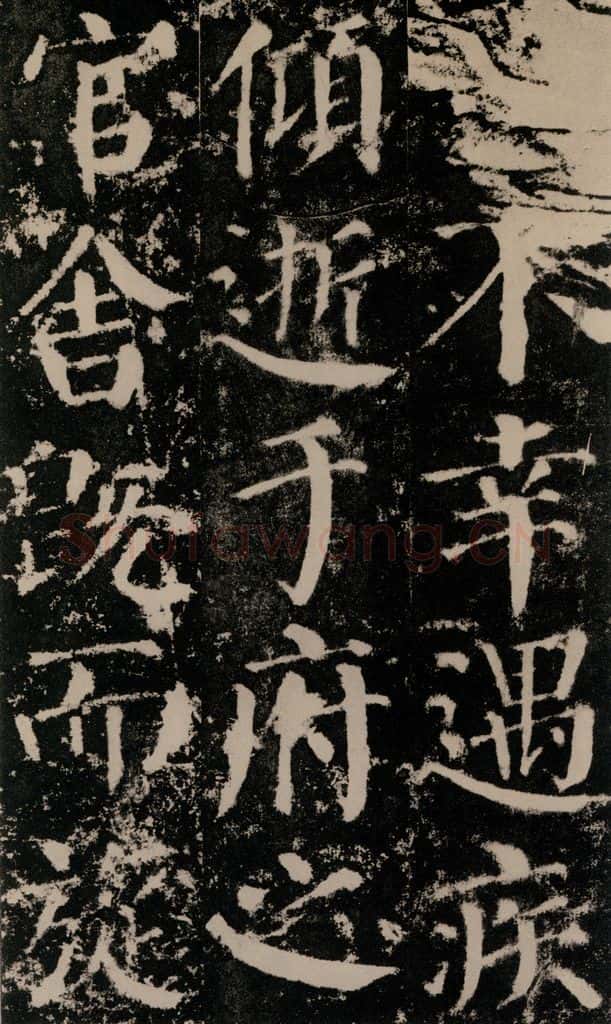 不幸遇疾
傾逝于府之
官舍既而旋
Shufawang.CN